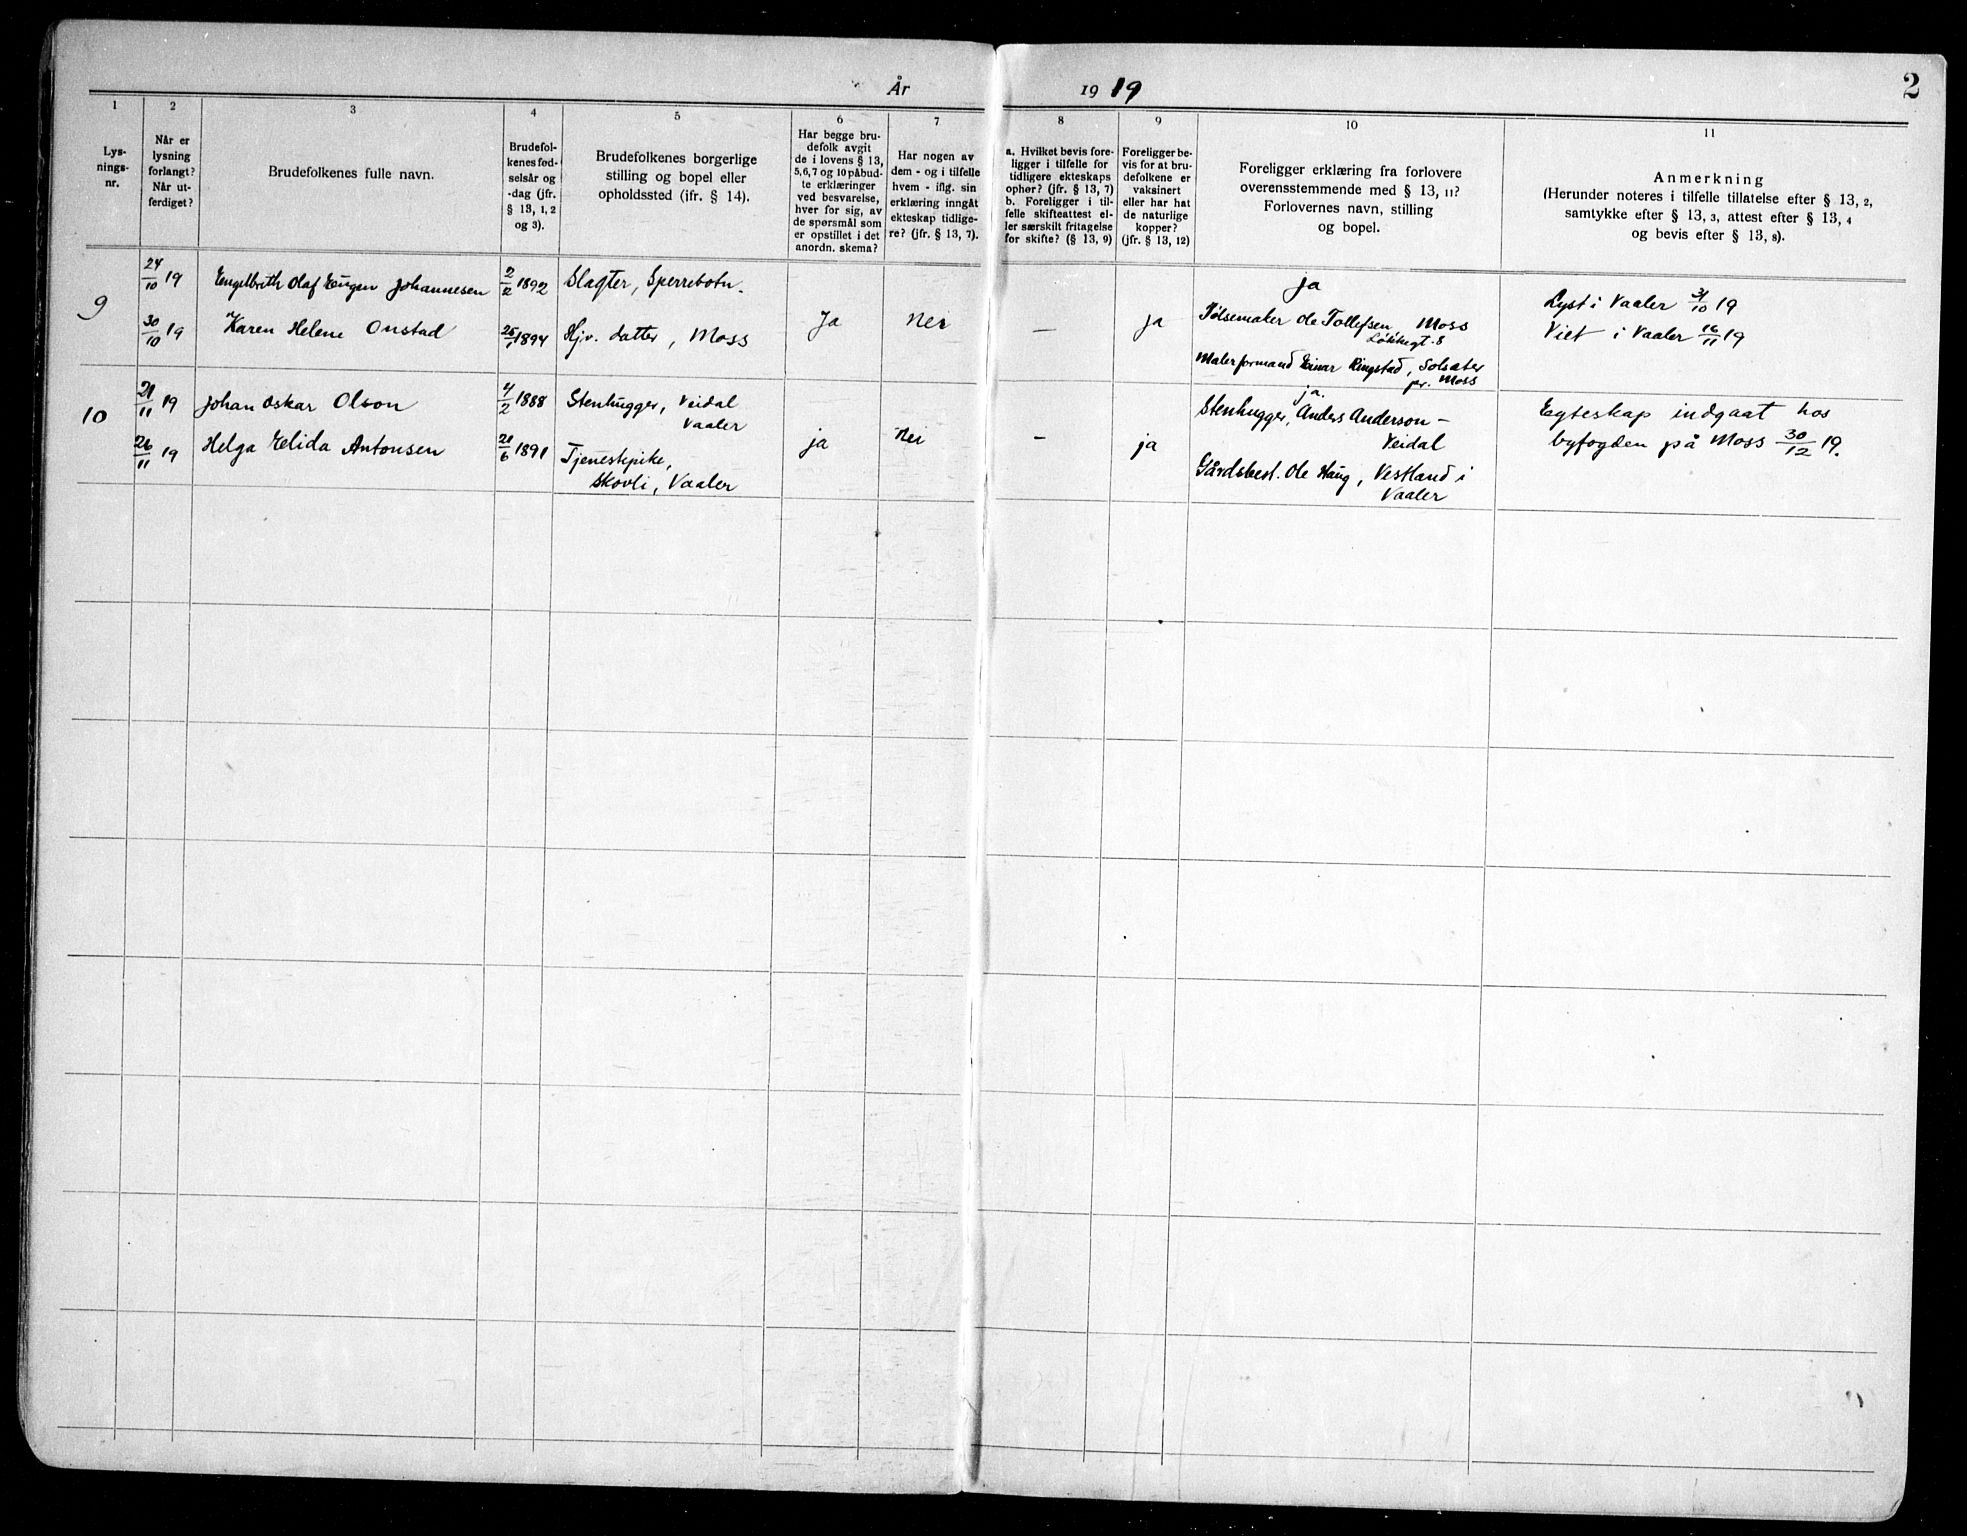 År 1919
2
1 2 3 4 5 6 7 8 9 10 11
Lys-
nings-
nr.
Når er
lysning
forlangt?
Når ut-
ferdiget?
Brudefolkenes fulle navn.
Brudefol-
kenes fød-
selsår og
-dag (jfr.
§ 13, 1, 2
og 3).
Brudefolkenes borgerlige
stilling og bopel eller
opholdssted (jfr. § 14).
Har begge bru-
defolk avgit
de i lovens § 13,
5, 6, 7 og 10 påbud-
te erklæringer
ved besvarelse,
hver for sig, av
de spørsmål som
er opstillet i det
anordn. skema?
Har nogen av
dem - og i tilfelle
hvem - iflg. sin
erklæring inngåt
ekteskap tidlige-
re? (jfr. § 13, 7).
a. Hvilket bevis fore-
ligger i tilfelle for
tidligere ekteskaps
ophør? (jfr. § 13, 7)
b. Foreligger i til-
felle skifteattest el-
ler særskilt fritagelse
for skifte? (§ 13, 9)
Foreligger be-
vis for at bru-
defolkene er
vaksinert
eller har hat
de naturlige
kopper?
(jfr. § 13, 12)
Foreligger erklæring fra forlovere
overensstemmende med § 13, 11?
Forlovernes navn, stilling
og bopel.
Anmerkning
(Herunder noteres i tilfelle tillatelse efter § 13, 2,
samtykke efter § 13, 3, attest efter § 13, 4
og bevis efter § 13, 8).
9
24/10 19
Engelbrith Olaf Eugen Johannesen
2/2 1892
Slagter, Sperrebotn.
30/10 19
Karen Helene Onstad
25/1 1894
Hjv. datter, Moss
Ja
Nei
—
ja
ja
Pølsemaker Ole Tollefsen, Moss
Malerformand Einar Ringstad, Solsæter
pr. Moss
Lyst i Vaaler 31/10 19
Viet i Vaaler 16/11 19
10
21/11 19
Johan Oskar Olson
4/2 1888
Stenhugger, Veidal
Vaaler
26/11 19
Helga Elida Antonsen
21/6 1891
Tjenestepike,
Skovli, Vaaler
ja
Nei
—
ja
ja.
Stenhugger, Anders Anderson –
Veidal
Gårdsbest. Ole Haug, Vestland i
Vaaler
Egteskap indgaat hos
byfogden på Moss 30/12 19.